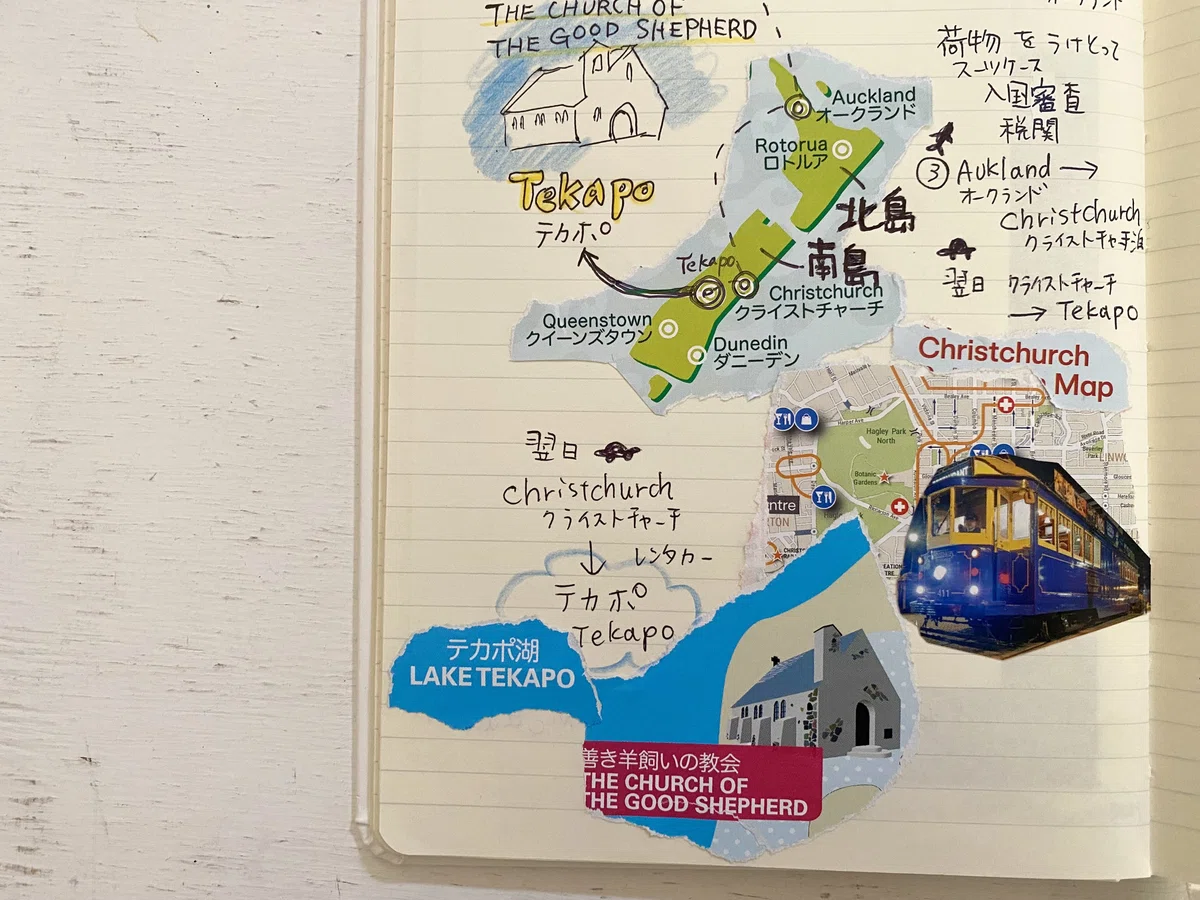 THE CHURCH OF
THE GOOD SHEPHERD
Tekapo
テカポ
Auckland
オークランド
Rotorua
ロトルア
北島
南島
Tekapo
Christchurch
クライストチャーチ
Queenstown
クイーンズタウン
Dunedin
ダニーデン
オークランド
荷物 を うけとって
スーツケース
入国審査
税関
③ Aukland →
オークランド
Christchurch
クライストチャーチ泊
翌日 クライストチャーチ
→ Tekapo
Christchurch
Map
Hagley Park
North
Botanic
Gardens
Harper Ave
Bealey Ave
Riccarton Ave
ntre
TON
411
翌日
Christchurch
クライストチャーチ
↓ レンタカー
テカポ
Tekapo
テカポ湖
LAKE TEKAPO
善き羊飼いの教会
THE CHURCH OF
THE GOOD SHEPHERD